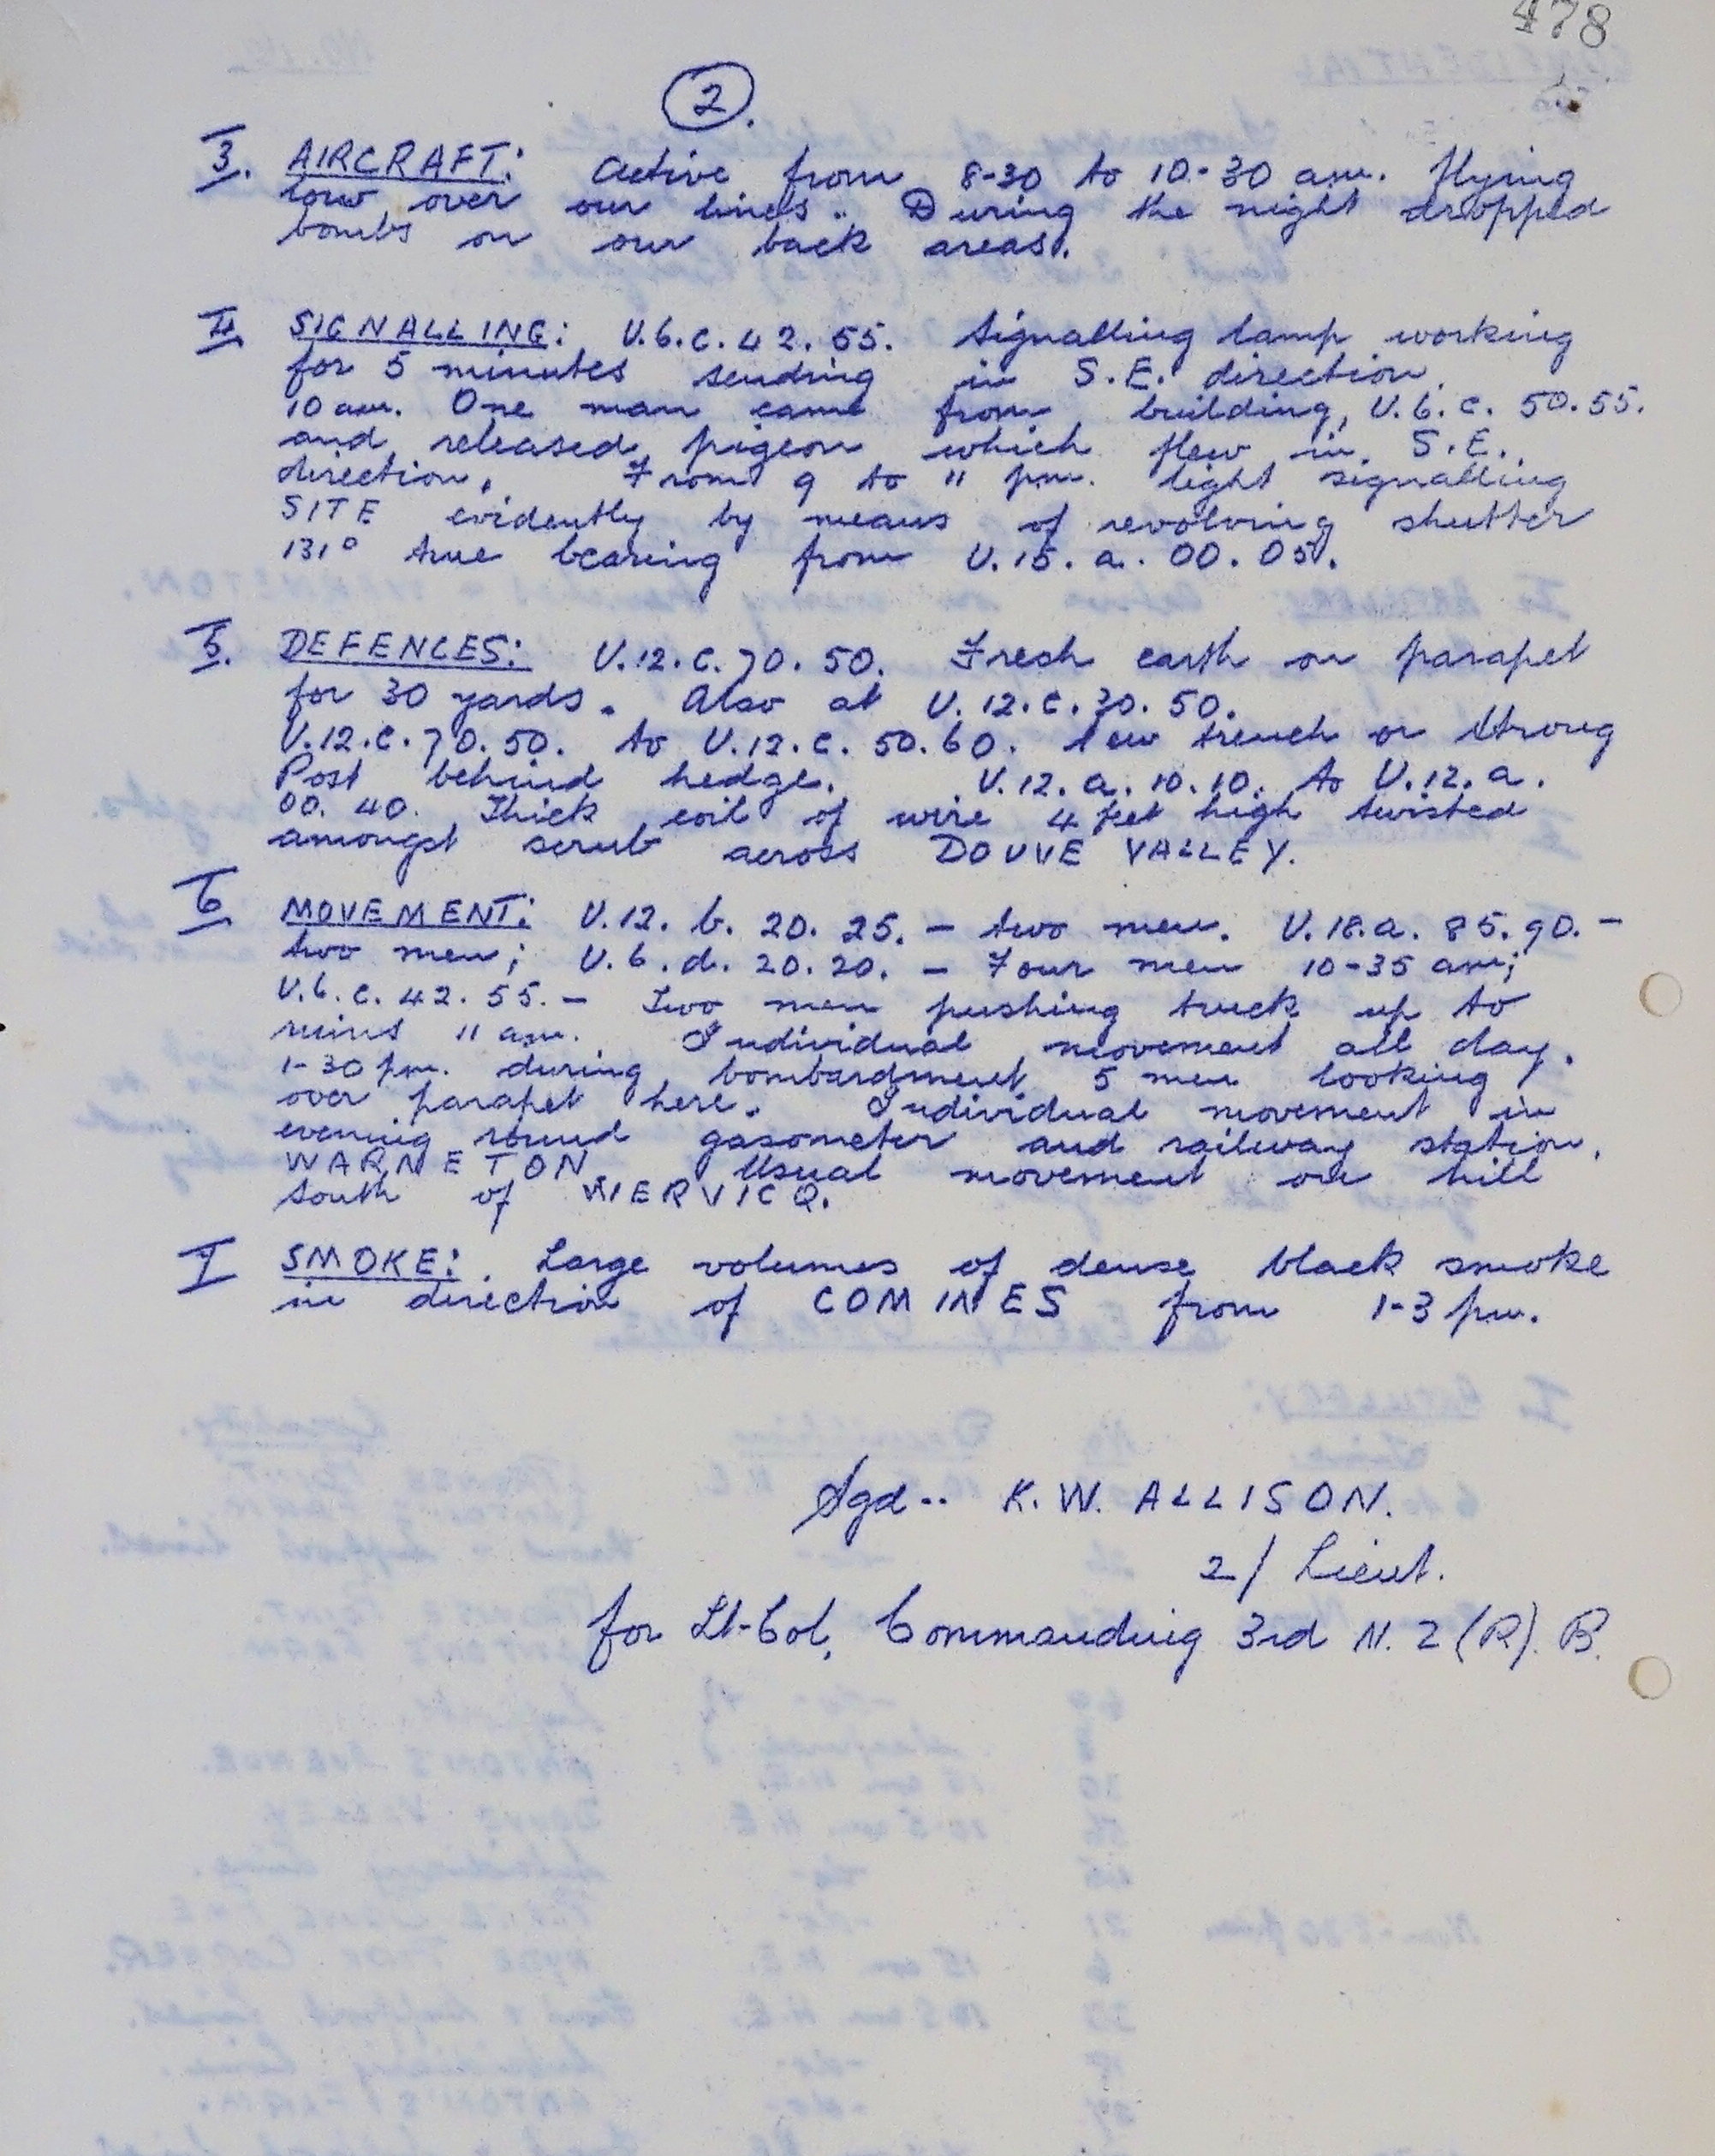 478
2.
3. AIRCRAFT: Active from 8-30 to 10-30 am. flying
low over our lines.. During the night dropped
bombs on our back areas.
4. SIGNALLING: U.6.c.42.55. Signalling lamp working
for 5 minutes sending in S.E. direction.
10 am. One man came from building, U.6.c. 50.55.
and released pigeon which flew in S.E.
direction. From 9 to 11 pm. light signalling
SITE evidently by means of revolving shutter
131° true bearing from U.15.a.00.05.
5. DEFENCES: U.12.c.70.50. Fresh earth on parapet
for 30 yards. Also at U.12.c.30.50.
U.12.c.70.50. to U.12.c.50.60. new trench or strong
Post behind hedge. U.12.a.10.10. to U.12.a.
00.40. Thick coil of wire 4 feet high twisted
amongst scrub across DOUVE VALLEY.
6. MOVEMENT: U.12.b.20.25. - two men. U.18.a.85.90. -
two men; U.6.d.20.20. - Four men 10-35 am;
U.6.c.42.55. - Two men pushing truck up to
ruins 11 am. Individual movement all day.
1-30 pm. during bombardment 5 men looking
over parapet here. Individual movement in
evening round gasometer and railway station,
WARNETON. Usual movement on hill
South of WERVICQ.
7 SMOKE: Large volumes of dense black smoke
in direction of COMINES from 1-3 pm.
Sgd.. K.W. ALLISON.
2/Lieut.
for Lt-Col, Commanding 3rd N.Z (R). B.